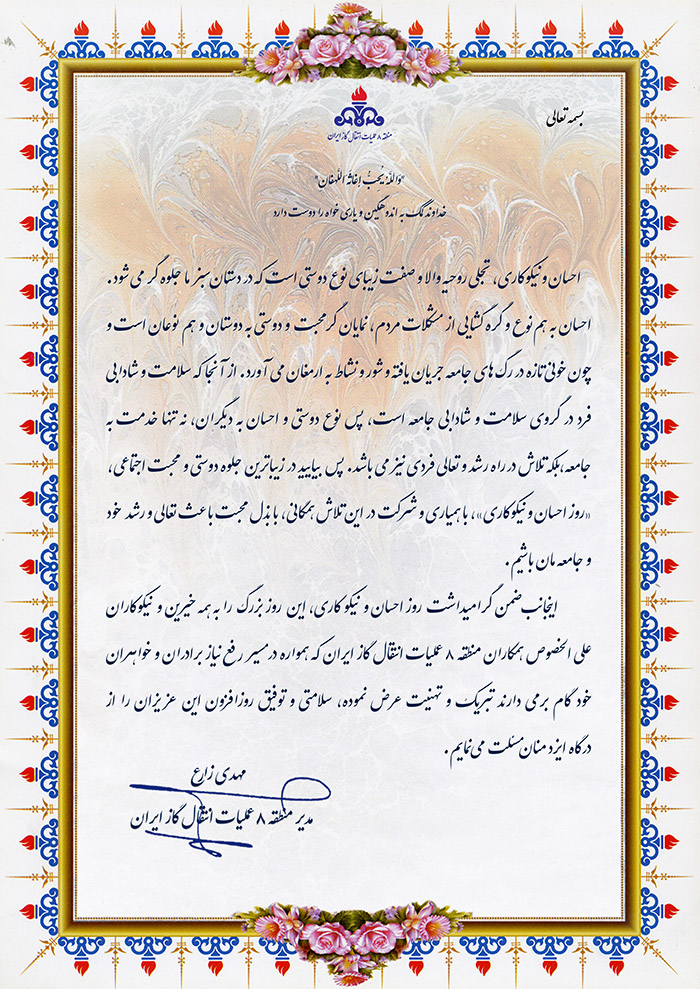 بسمه تعالی
منطقه ۸ عملیات انتقال گاز ایران
"وَاللهُ یُحِبُّ إغاثَةَ اللَّهفان"
خداوند کمک به اندوهگین و یاری خواه را دوست دارد
احسان و نیکوکاری، تجلی روحیه والا و صفت زیبای نوع دوستی است که در دستان سبز ما جلوه گر می شود.
احسان به هم نوع و گره گشایی از مشکلات مردم، نمایان گر محبت و دوستی به دوستان و هم نوعان است و
چون خونی تازه در رگ های جامعه جریان یافته و شور و نشاط به ارمغان می آورد. از آنجا که سلامت و شادابی
فرد در گروی سلامت و شادابی جامعه است، پس نوع دوستی و احسان به دیگران، نه تنها خدمت به
جامعه، بلکه تلاش در راه رشد و تعالی فردی نیز می باشد. پس بیایید در زیباترین جلوه دوستی و محبت اجتماعی،
«روز احسان و نیکوکاری»، با همیاری و شرکت در این تلاش همگانی، با بذل محبت باعث تعالی و رشد خود
و جامعه مان باشیم.
اینجانب ضمن گرامیداشت روز احسان و نیکوکاری، این روز بزرگ را به همه خیرین و نیکوکاران
علی الخصوص همکاران منطقه ۸ عملیات انتقال گاز ایران که همواره در مسیر رفع نیاز برادران و خواهران
خود گام برمی دارند تبریک و تهنیت عرض نموده، سلامتی و توفیق روزافزون این عزیزان را از
درگاه ایزد منان مسئلت می نمایم.
مهدی زارع
مدیر منطقه ۸ عملیات انتقال گاز ایران